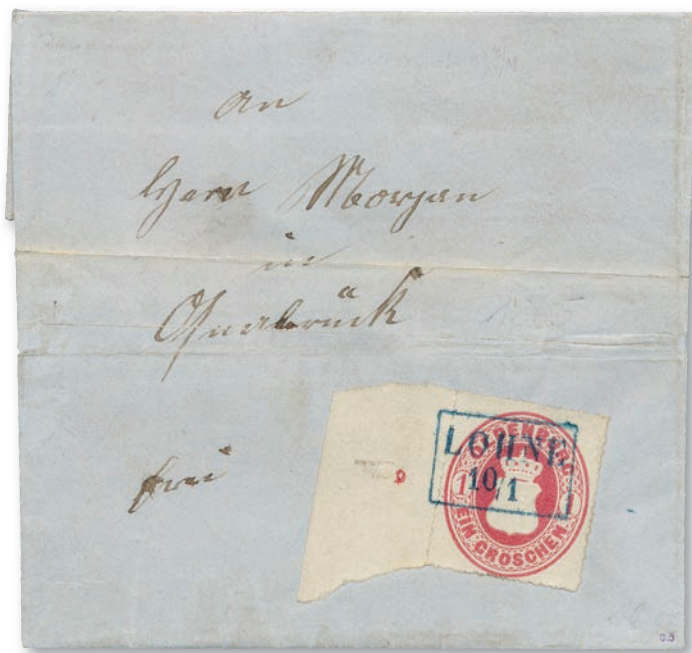 An
Herrn Morjan
in
Osnabrück
frei
LOHNE
10/1
OLDENBURG
1 1
EIN GROSCHEN